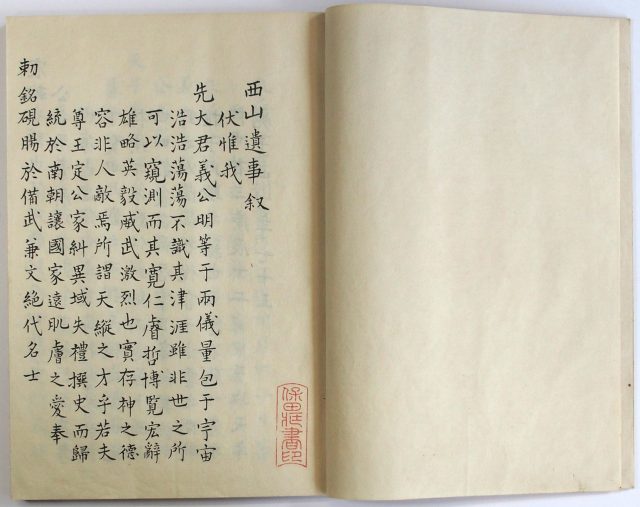 西山遺事叙
伏惟我
先大君義公明等于兩儀量包于宇宙
浩浩蕩蕩不識其津涯雖非世之所
可以窺測而其寬仁睿哲博覧宏辭
雄略英毅威武激烈也實存神之德
容非人敵焉所謂天縱之才乎若夫
尊王定公家糾異域失禮撰史而歸
統於南朝讓國家遠肌膚之愛奉
勅銘硯賜於備武兼文絕代名士
保田荘書印